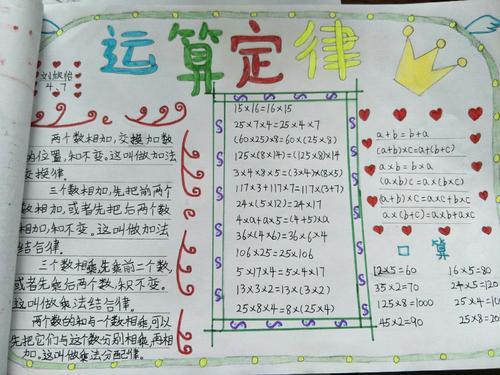 运算定律
4.7
两个数相加,交换加数
的位置,和不变。这叫做加法
交换律。
三个数相加,先把前两个
数相加,或者先把后两个数
相加,和不变。这叫做加法
结合律。
三个数相乘先乘前二个数,
或者先乘后两个数,积不变。
这叫做乘法结合律。
两个数的和与一个数相乘,可以
先把它们与这个数分别相乘,再相
加。这叫做乘法分配律。
15×16=16×15
25×7×4=25×4×7
(60×25)×8=60×(25×8)
125×(8×14)=(125×8)×14
3×4×8×5=(3×4)×(8×5)
117×3+117×7=117×(3+7)
24×(5×12)=24×17
4×a+a×5=(4+5)×a
36×(4×6)=36×6×4
106×25=25×106
5×17×4=5×4×17
13×3×2=13×(3×2)
25×8×4=8×(25×4)
a+b=b+a
(a+b)+c=a+(b+c)
a×b=b×a
(a×b)c=a(b×c)
(a+b)×c=a×c+b×c
a×(b+c)=a×b+a×c
口算
12×5=60 16×5=80
35×2=70 24×5=120
125×8=1000 25×4=10
45×2=90 25×8=20